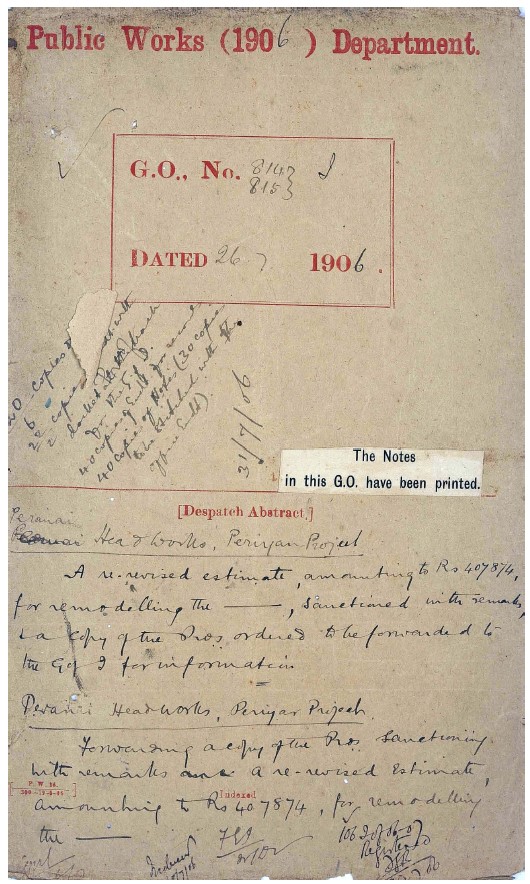 Public Works (1906) Department.
G.O., No. 814 } I
815 }
DATED 26 7 1906.
20 copies
28 copies
40 copies of
40 copies of Notes (30 copies
to be attached with the
office
31/7/06
The Notes
in this G.O. have been printed.
[Despatch Abstract.]
Peranai
Head Works, Periyar Project
A re-revised estimate, amounting to Rs 407874,
for remodelling the ———, sanctioned with remarks,
& a copy of the Pros ordered to be forwarded to
the Govt of I for information
Peranai Head Works, Periyar Project.
Forwarding a copy of the Pros. sanctioning
with remarks a re-revised Estimate,
P. W. 14.
Indexed
amounting to Rs 407874, for remodelling
the ———
106 I of 06-07
Registered